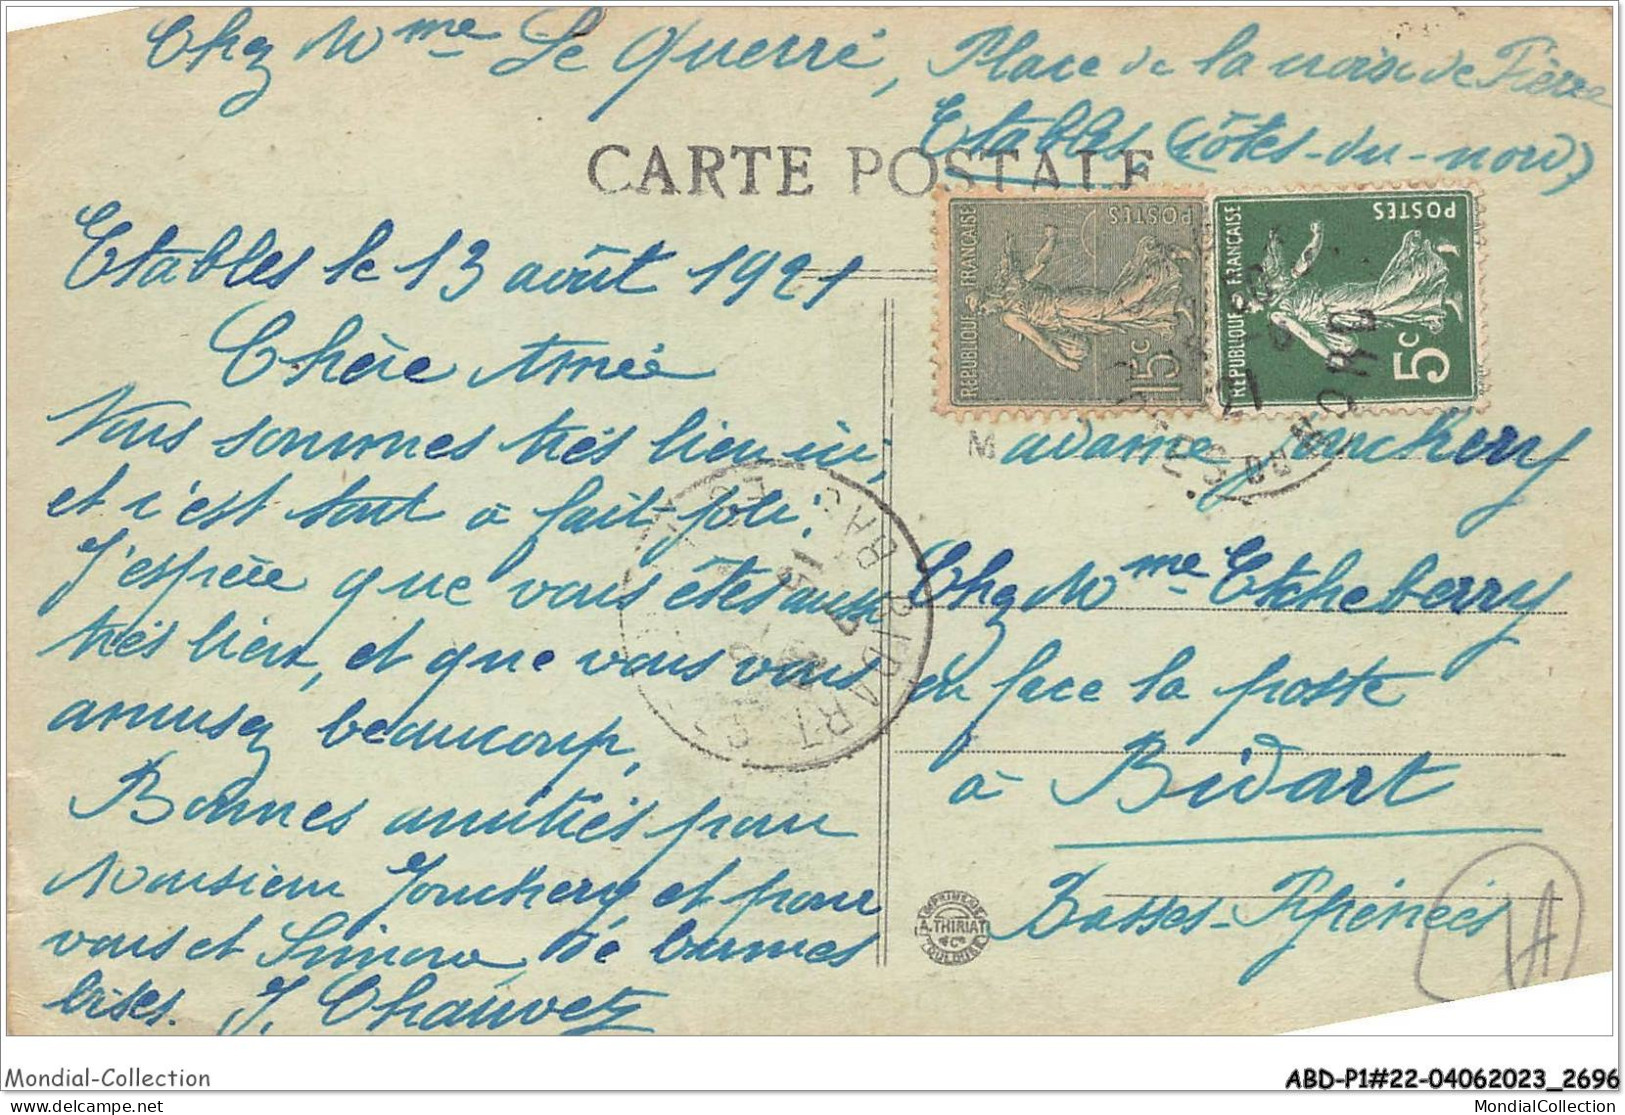 Chez Mme Le Querré, Place de la
Etables (Côtes-du-nord)
CARTE POSTALE
Etables le 13 août 1921
Chère Amie
Vous sommes très bien ici,
et c'est tout à fait joli.
J'espère que vous êtes aussi
très bien, et que vous vous
amusez beaucoup,
Bonnes amitiés pour
Monsieur Jonckery et pour
vous et Simone, de bonnes
bises. J. Chauvetz
POSTES
REPUBLIQUE FRANÇAISE
15c
POSTES
REPUBLIQUE FRANÇAISE
5c
DU NORD
21
BIDART
BAS
Madame Jonckery
Chez Mme Etcheberry
en face la poste
à Bidart
Basses-Pyrénées
IMPRIMERIE
A. THIRIAT
& Cie
TOULOUSE
Mondial-Collection
ABD-P1#22-04062023_2696
delcampe.net
MondialCollection